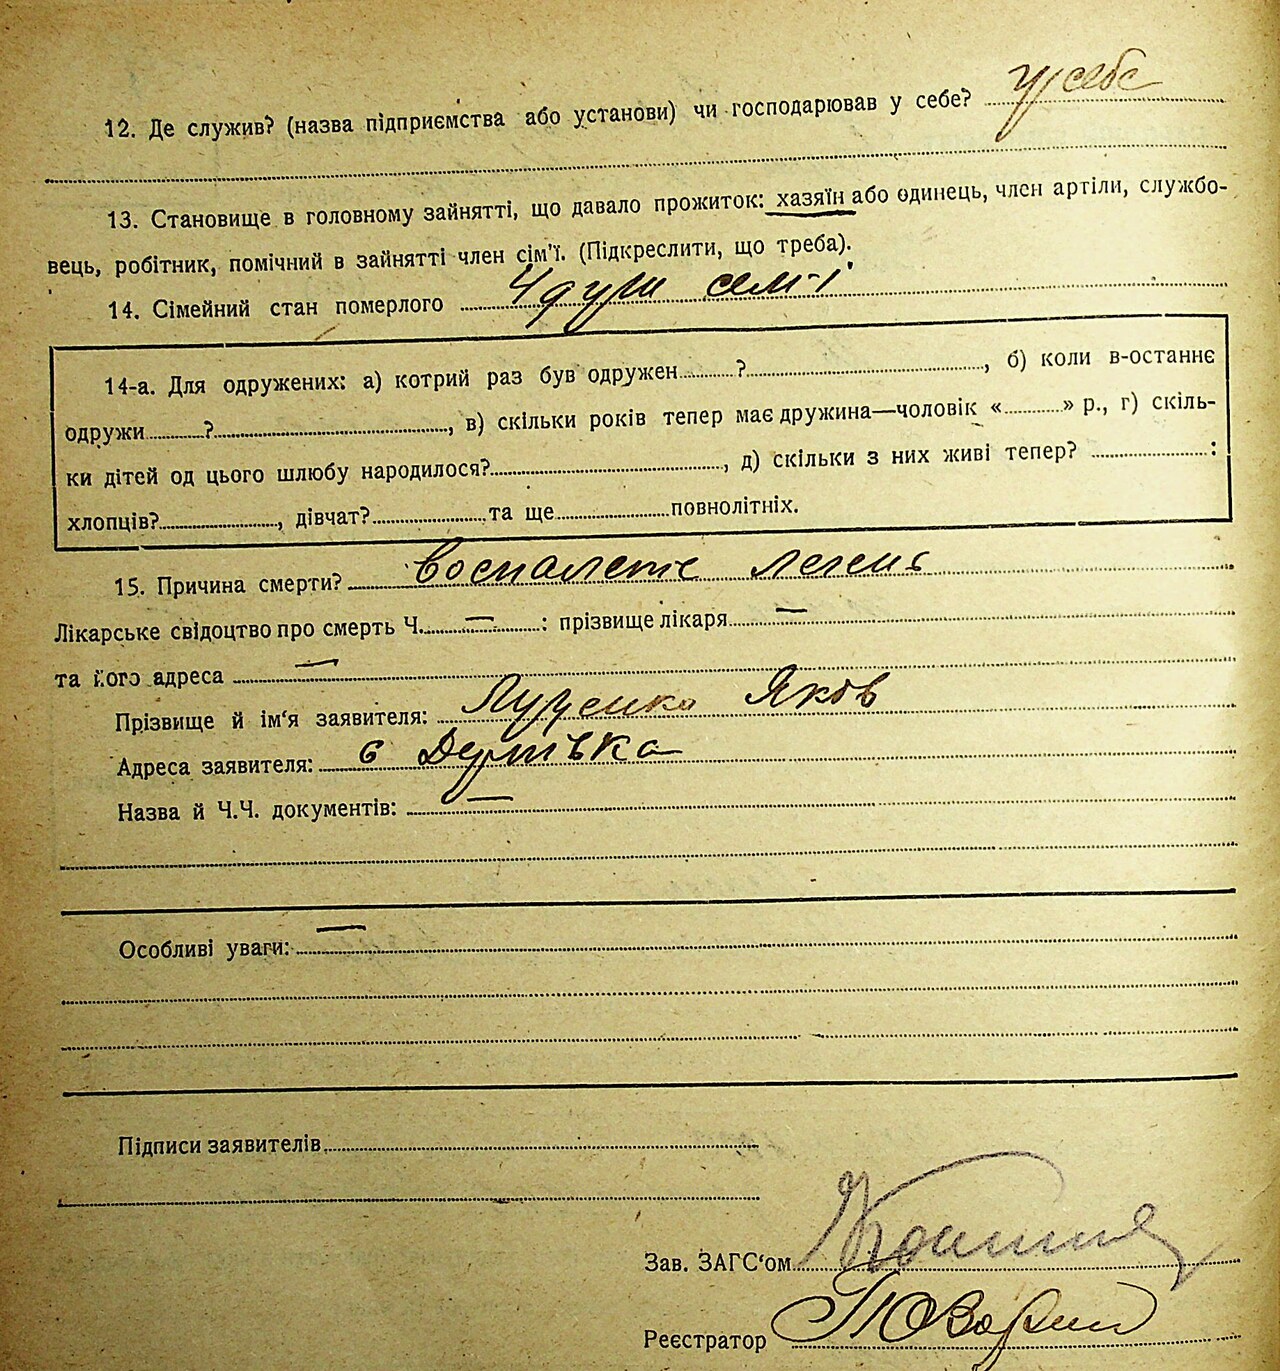 12. Де служив? (назва підприємства або установи) чи господарював у себе? у себе
13. Становище в головному зайнятті, що давало прожиток: хазяїн або одинець, член артіли, службо-
вець, робітник, помічний в зайнятті член сім'ї. (Підкреслити, що треба).
14. Сімейний стан померлого 4 души семʼї
14-а. Для одружених: а) котрий раз був одружен.........?........................., б) коли в-останнє
одружи.........?........................., в) скільки років тепер має дружина—чоловік «.........» р., г) скіль-
ки дітей од цього шлюбу народилося?........................., д) скільки з них живі тепер? ...............:
хлопців?..............., дівчат?...............та ще...............повнолітніх.
15. Причина смерти? воспаление легень
Лікарське свідоцтво про смерть Ч. — : прізвище лікаря —
та його адреса —
Прізвище й ім'я заявителя: Луценко Яков
Адреса заявителя: с
Назва й Ч.Ч. документів: —
Особливі уваги: —
Підписи заявителів
Зав. ЗАГС'ом
Реєстратор